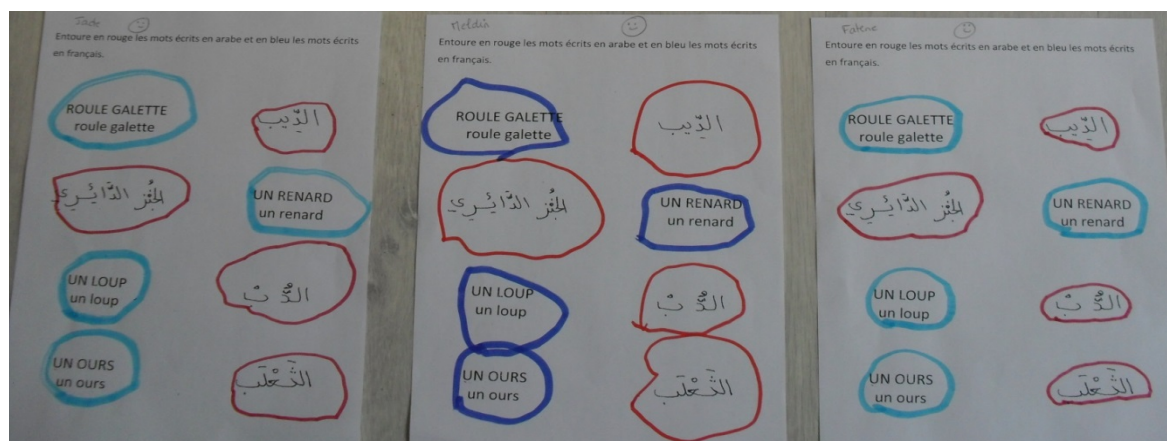 Jade
Entoure en rouge les mots écrits en arabe et en bleu les mots écrits
en français.
ROULE GALETTE
roule galette
الدِّيب
الخُبْز الدَّائِري
UN RENARD
un renard
UN LOUP
un loup
الدُّبْ
UN OURS
un ours
الثَعْلَب
Entoure en rouge les mots écrits en arabe et en bleu les mots écrits
en français.
ROULE GALETTE
roule galette
الدِّيب
الخُبْز الدَّائِري
UN RENARD
un renard
UN LOUP
un loup
الدُّبْ
UN OURS
un ours
الثَعْلَب
Entoure en rouge les mots écrits en arabe et en bleu les mots écrits
en français.
ROULE GALETTE
roule galette
الدِّيب
الخُبْز الدَّائِري
UN RENARD
un renard
UN LOUP
un loup
الدُّبْ
UN OURS
un ours
الثَعْلَب